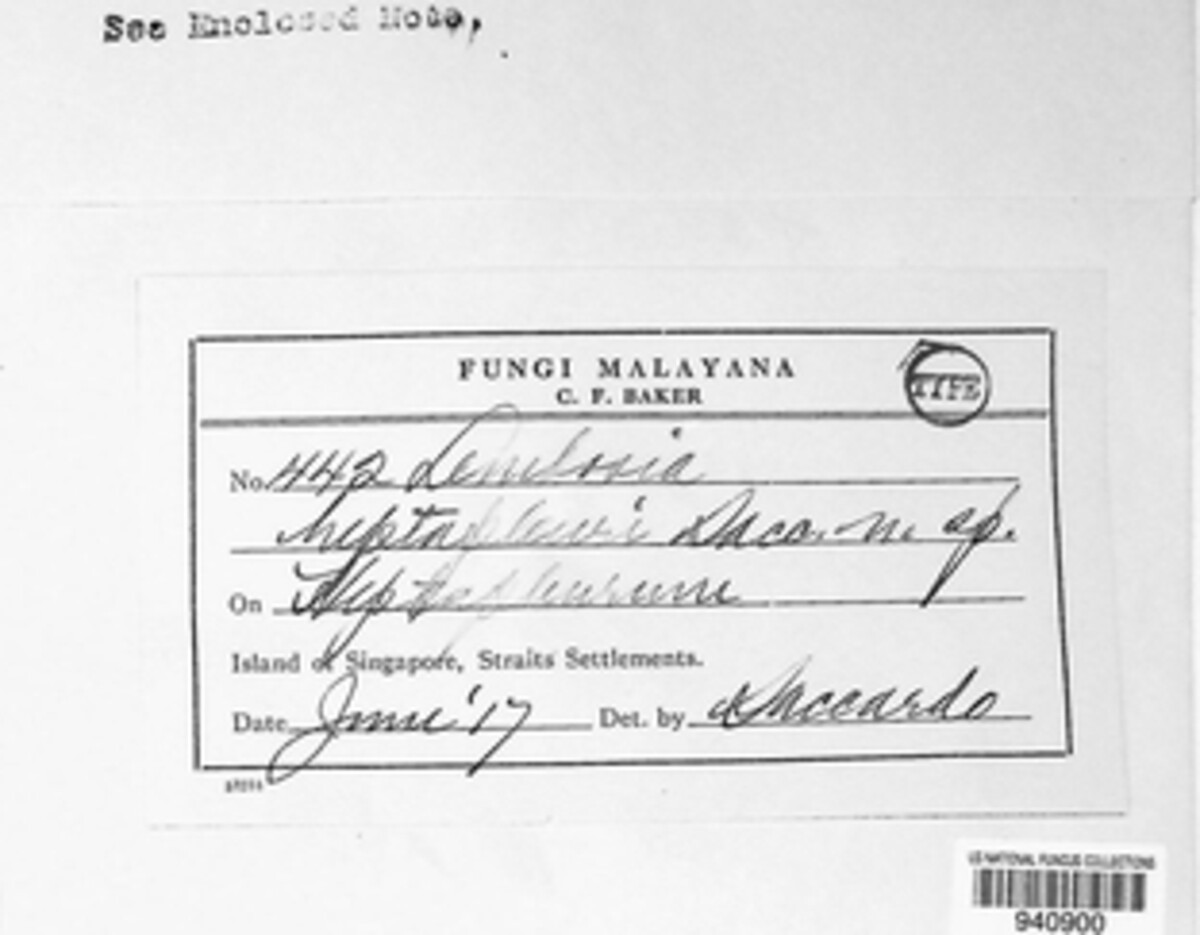 See Enclosed Note,
FUNGI MALAYANA
C. F. BAKER
TYPE
No. 442 Lembosia
heptapleuri Sacc. n. sp.
On Heptapleurum
Island of Singapore, Straits Settlements.
Date June '17 Det. by Saccardo
US NATIONAL FUNGUS COLLECTIONS
940900